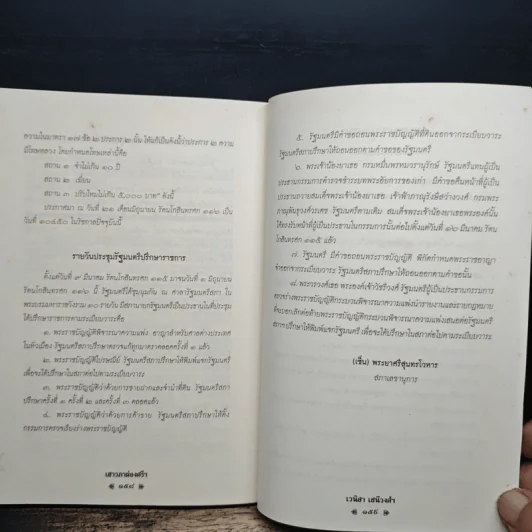 ความในมาตรา ๑๗ ข้อ ๒ ประการ ๒ นั้น ให้แก้เป็นดังนี้ว่าประการ ๒ ความ
มีโทษหลวง โดยกำหนดโทษเหล่านี้คือ
สถาน ๑ จำไม่เกิน ๑๐ ปี
สถาน ๒ เฆี่ยน
สถาน ๓ ปรับไหมไม่เกิน ๕,๐๐๐ บาท" ดังนี้
ประกาศมา ณ วันที่ ๒๑ เดือนมิถุนายน รัตนโกสินทรศก ๑๑๖ เป็น
วันที่ ๑๐๔๕๐ ในรัชกาลปัจจุบันนี้
รายวันประชุมรัฐมนตรีปรึกษาราชการ
ตั้งแต่วันที่ ๙ มีนาคม รัตนโกสินทรศก ๑๑๕ มาจนวันที่ ๑ มิถุนายน
รัตนโกสินทรศก ๑๑๖ นี้ รัฐมนตรีได้ชุมนุมกัน ณ ศาลารัฐมนตรีสภา ใน
พระบรมมหาราชวังรวม ๑๐ วาน มีสภานายกรัฐมนตรีเป็นประธานในที่ประชุม
ได้ปรึกษาราชการตามระเบียบวาระคือ
๑. พระราชบัญญัติพิจารณาความแพ่ง อาญาสำหรับศาลต่างประเทศ
ในหัวเมือง รัฐมนตรีสภาปรึกษาตรวจแก้ทุกมาตราตลอดครั้งที่ ๑ แล้ว
๒. พระราชบัญญัติไปรษณีย์ รัฐมนตรีสภาปรึกษาให้พิมพ์แจกรัฐมนตรี
เพื่อจะได้ปรึกษาในสภาต่อไปตามระเบียบวาระ
๓. พระราชบัญญัติว่าด้วยการขายฝากและจำนำที่ดิน รัฐมนตรีสภา
ปรึกษาครั้งที่ ๑ ครั้งที่ ๒ และครั้งที่ ๓ ตลอดแล้ว
๔. พระราชบัญญัติว่าด้วยการค้าขาย รัฐมนตรีสภาปรึกษาให้ตั้ง
กรรมการตรวจเรียงร่างพระราชบัญญัติ
เสาวภาผ่องศรี
๑๕๘
๕. รัฐมนตรีมีคำขอถอนพระราชบัญญัติที่ดินออกจากระเบียบวาระ
รัฐมนตรีสภาปรึกษาให้ถอนออกตามคำขอของรัฐมนตรี
๖. พระเจ้าน้องยาเธอ กรมหมื่นพรหมวรานุรักษ์ รัฐมนตรีแทนผู้เป็น
ประธานกรรมการตำรวจชำระบทพระอัยการของเก่า มีคำขอคืนหน้าที่ผู้เป็น
ประธานถวายสมเด็จพระเจ้าน้องยาเธอ เจ้าฟ้าภาณุรังษีสว่างวงศ์ กรมพระ
ภาณุพันธุวงศ์วรเดช รัฐมนตรีตามเดิม สมเด็จพระเจ้าน้องยาเธอพระองค์นั้น
ได้ทรงรับหน้าที่ผู้เป็นประธานในกรรมการนั้นต่อไปตั้งแต่วันที่ ๑๒ มีนาคม รัตน
โกสินทรศก ๑๑๕ แล้ว
๗. รัฐมนตรี มีคำขอถอนพระราชบัญญัติ พิกัดกำหนดพระราชอาญา
จำออกจากระเบียบวาระ รัฐมนตรีสภาปรึกษาให้ถอนออกตามคำขอนั้น
๘. พระวรวงศ์เธอ พระองค์เจ้าวัชรีวงศ์ รัฐมนตรีผู้เป็นประธานกรรมการ
ตรวจร่างพระราชบัญญัติกระบวนพิจารณาความแพ่งนำรายงานและรายกฎหมาย
เพื่อจะได้ปรึกษาในสภาต่อไปตามระเบียบวาระ
(เซ็น) พระยาศรีสุนทรโวหาร
สภาเลขานุการ
เวนิสา เสนีวงศ์ฯ
๑๕๙